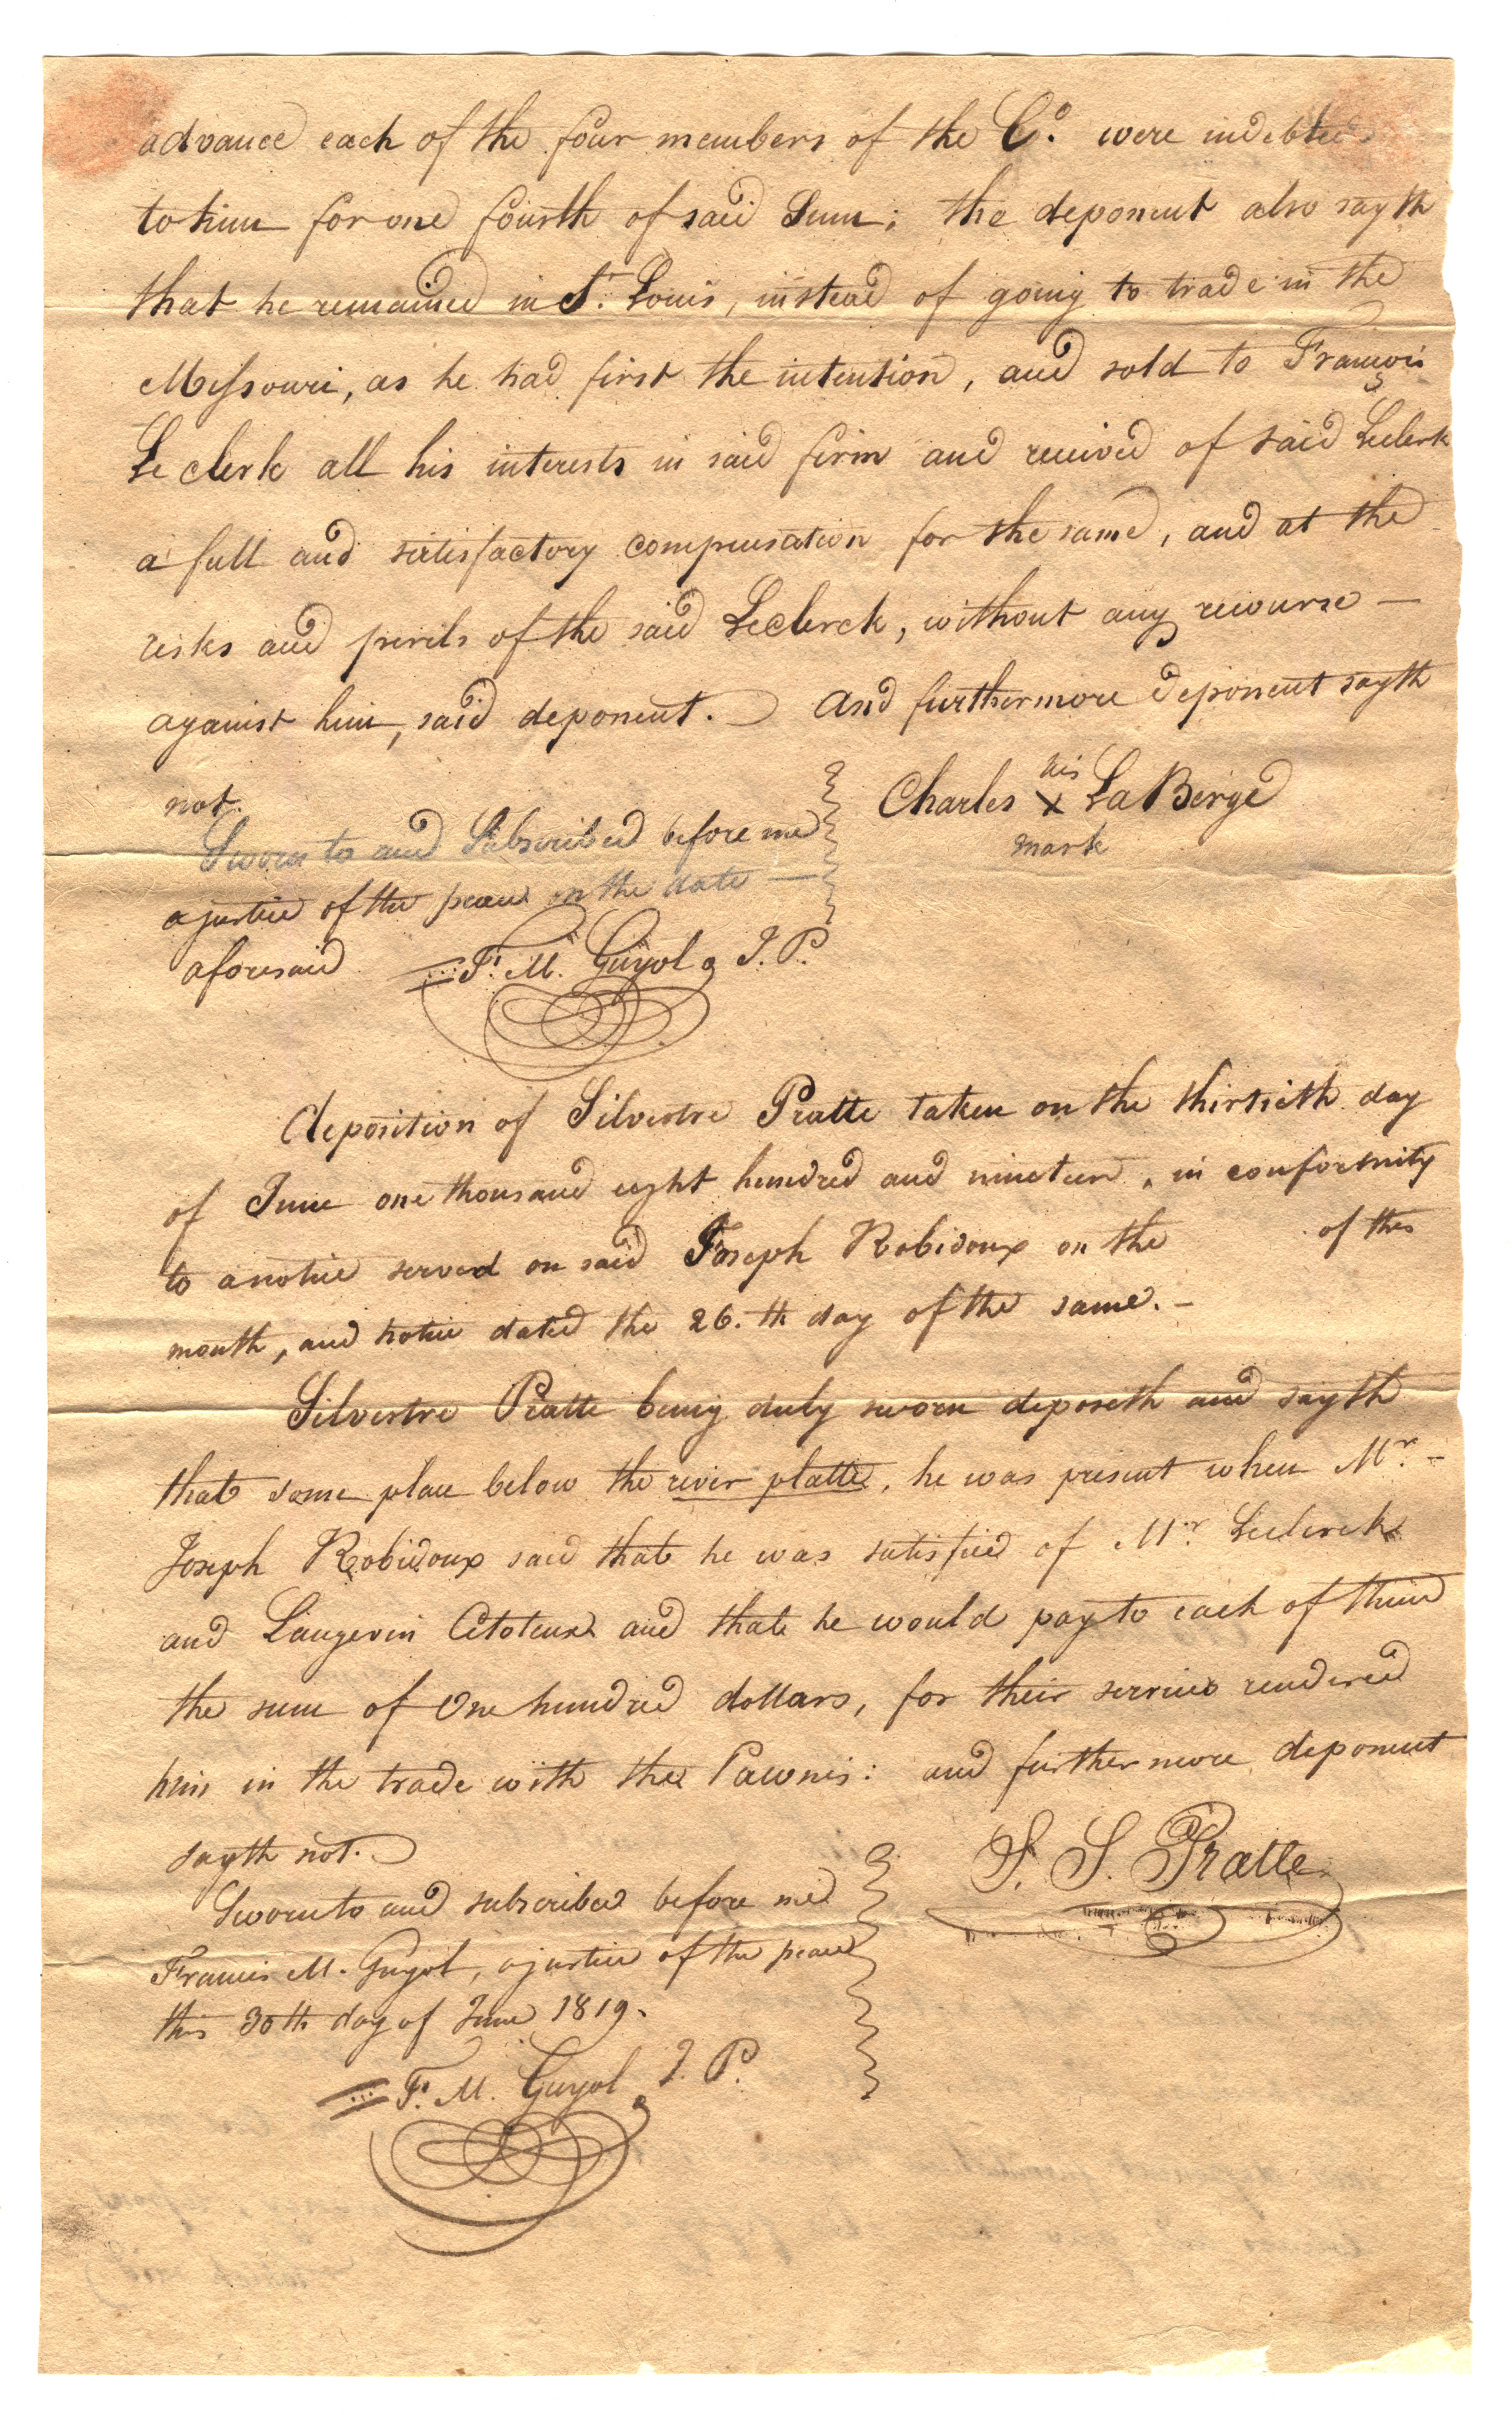 advance each of the four members of the Co. were indebted
to him for one fourth of said Sum; the deponent also sayth
that he remained in St. Louis, instead of going to trade in the
Missouri, as he had first the intention, and sold to François
Le clerk all his interests in said firm and received of said Leclerk
a full and satisfactory compensation for the same, and at the
risks and perils of the said Leclerck, without any recourse —
against him, said deponent. And furthermore deponent sayth
not.
Charles his X mark LaBerge
Sworn to and Subscribed before me
a justice of the peace on the date —
aforesaid
F. M. Guyol J. P.
Deposition of Silvestre Pratte taken on the thirtieth day
of June one thousand eight hundred and nineteen, in conformity
to a notice served on said Joseph Robidoux on the of this
month, and notice dated the 26.th day of the same. –
Silvestre Pratte being duly sworn deposeth and sayth
that some place below the river platte, he was present when Mr. –
Joseph Robidoux said that he was satisfied of Mr. Leclerck
and Langevin and that he would pay to each of them
the sum of One hundred dollars, for their services rendered
him in the trade with the Pawnis: and furthermore deponent
sayth not.
S. S. Pratte
Sworn to and subscribed before me
Francis M. Guyol, a justice of the peace
this 30th day of June 1819.
F. M. Guyol J. P.